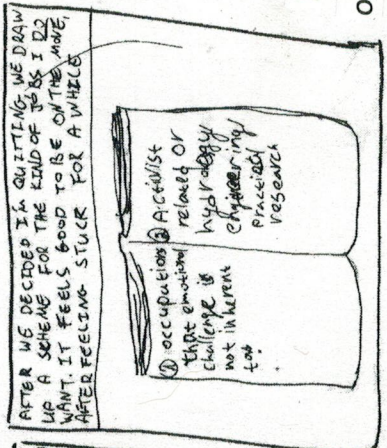 AFTER WE DECIDED I'M QUITTING, WE DRAW
UP A SCHEME FOR THE KIND OF JOBS I DO
WANT. IT FEELS GOOD TO BE ON THE MOVE,
AFTER FEELING STUCK FOR A WHILE
① occupations
that emotional
challenge is
not inherent
to
② Activist
related or
hydrology
engineering
practical
research